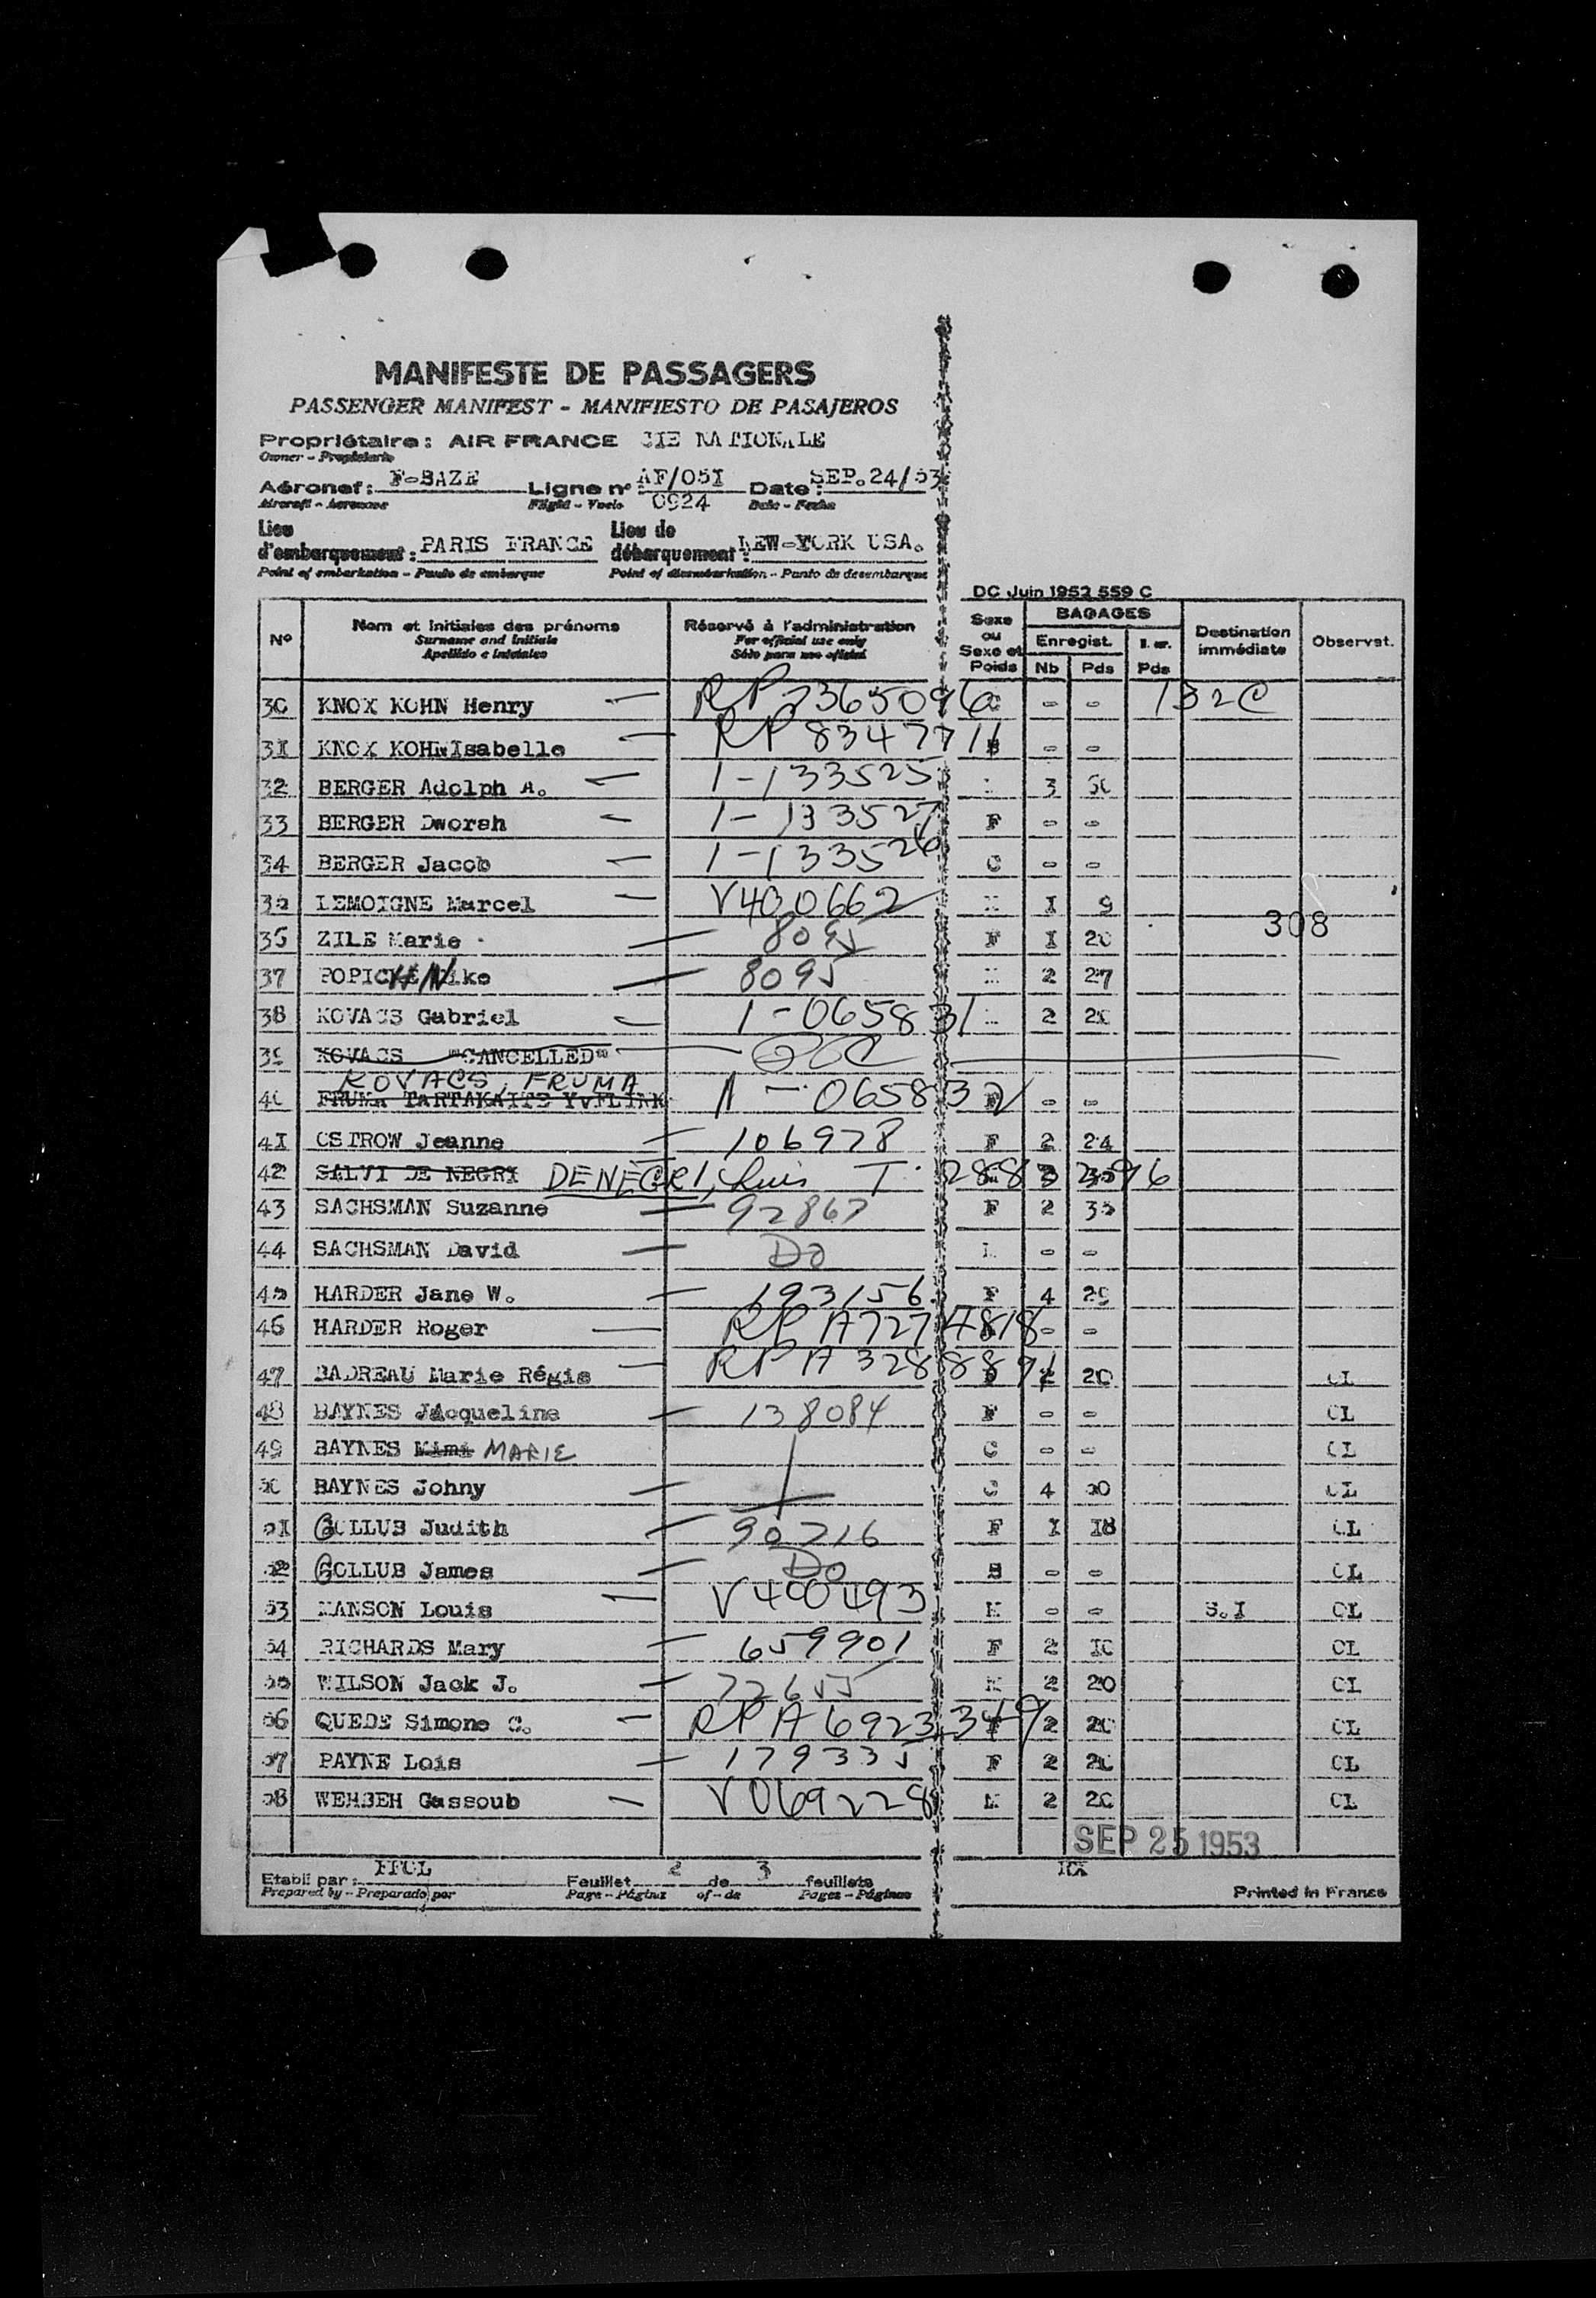 MANIFESTE DE PASSAGERS
PASSENGER MANIFEST - MANIFIESTO DE PASAJEROS
Propriétaire : AIR FRANCE CIE NATIONALE
Owner - Propietario
Aéronef : F-BAZE Ligne n° AF/051 Date : SEP.24/53
Aircraft - Aeronave Flight - Vuelo 0924 Date - Fecha
Lieu d'embarquement : PARIS FRANCE Lieu de débarquement : NEW-YORK USA.
Point of embarkation - Punto de embarque Point of disembarkation - Punto de desembarque
DC Juin 1952 559 C
N° Nom et initiales des prénoms Réservé à l'administration Sexe ou Sexe et Poids BAGAGES Enregist. Nb Pds Pds Destination immédiate Observat.
Surname and initials For official use only
Apellido e iniciales Sólo para uso oficial
30 KNOX KOHN Henry — RP 7365096 C - - 132C
31 KNOX KOHN Isabelle — RP 8347711 - -
32 BERGER Adolph A. — 1-133525 3 50
33 BERGER Dworah — 1-133527 F - -
34 BERGER Jacob — 1-133526 C - -
35 LEMOIGNE Marcel — V400662 M I 9
308
36 ZILE Marie — 8095 F I 20
37 POPICHN Mike — 8095 M 2 27
38 KOVACS Gabriel — 1-065831 2 20
39 KOVACS "CANCELLED"
KOVACS, FRUMA
40 FRUMA TARTAKAITE 1-065832 F - -
41 OSTROW Jeanne — 106978 F 2 24
42 SALVI DE NEGRI DENEGRI, Luis T. 2883
43 SACHSMAN Suzanne — 92867 F 2 35
44 SACHSMAN David — Do - -
45 HARDER Jane W. — 193156 F 4 29
46 HARDER Roger — RP A7274818 - -
47 BADREAU Marie Régis — RP A 3288891 2 20 CL
48 BAYNES Jacqueline — 138084 F - - CL
49 BAYNES Mimi MARIE C - - CL
50 BAYNES Johny — C 4 50 CL
51 GOLLUB Judith — 90716 F I 18 CL
52 GOLLUB James — Do - - CL
53 MANSON Louis — V400493 M - - S.I CL
54 RICHARDS Mary — 659901 F 2 10 CL
55 WILSON Jack J. — 72655 M 2 20 CL
56 QUEDE Simone C. — RP A 6923349 F 2 20 CL
57 PAYNE Lois — 179335 F 2 20 CL
58 WEHBEH Gassoub — V069228 M 2 20 CL
SEP 25 1953
Etabli par : Feuillet 2 de 3 feuillets
Prepared by - Preparado por Page - Página of - de Pages - Páginas
Printed in France